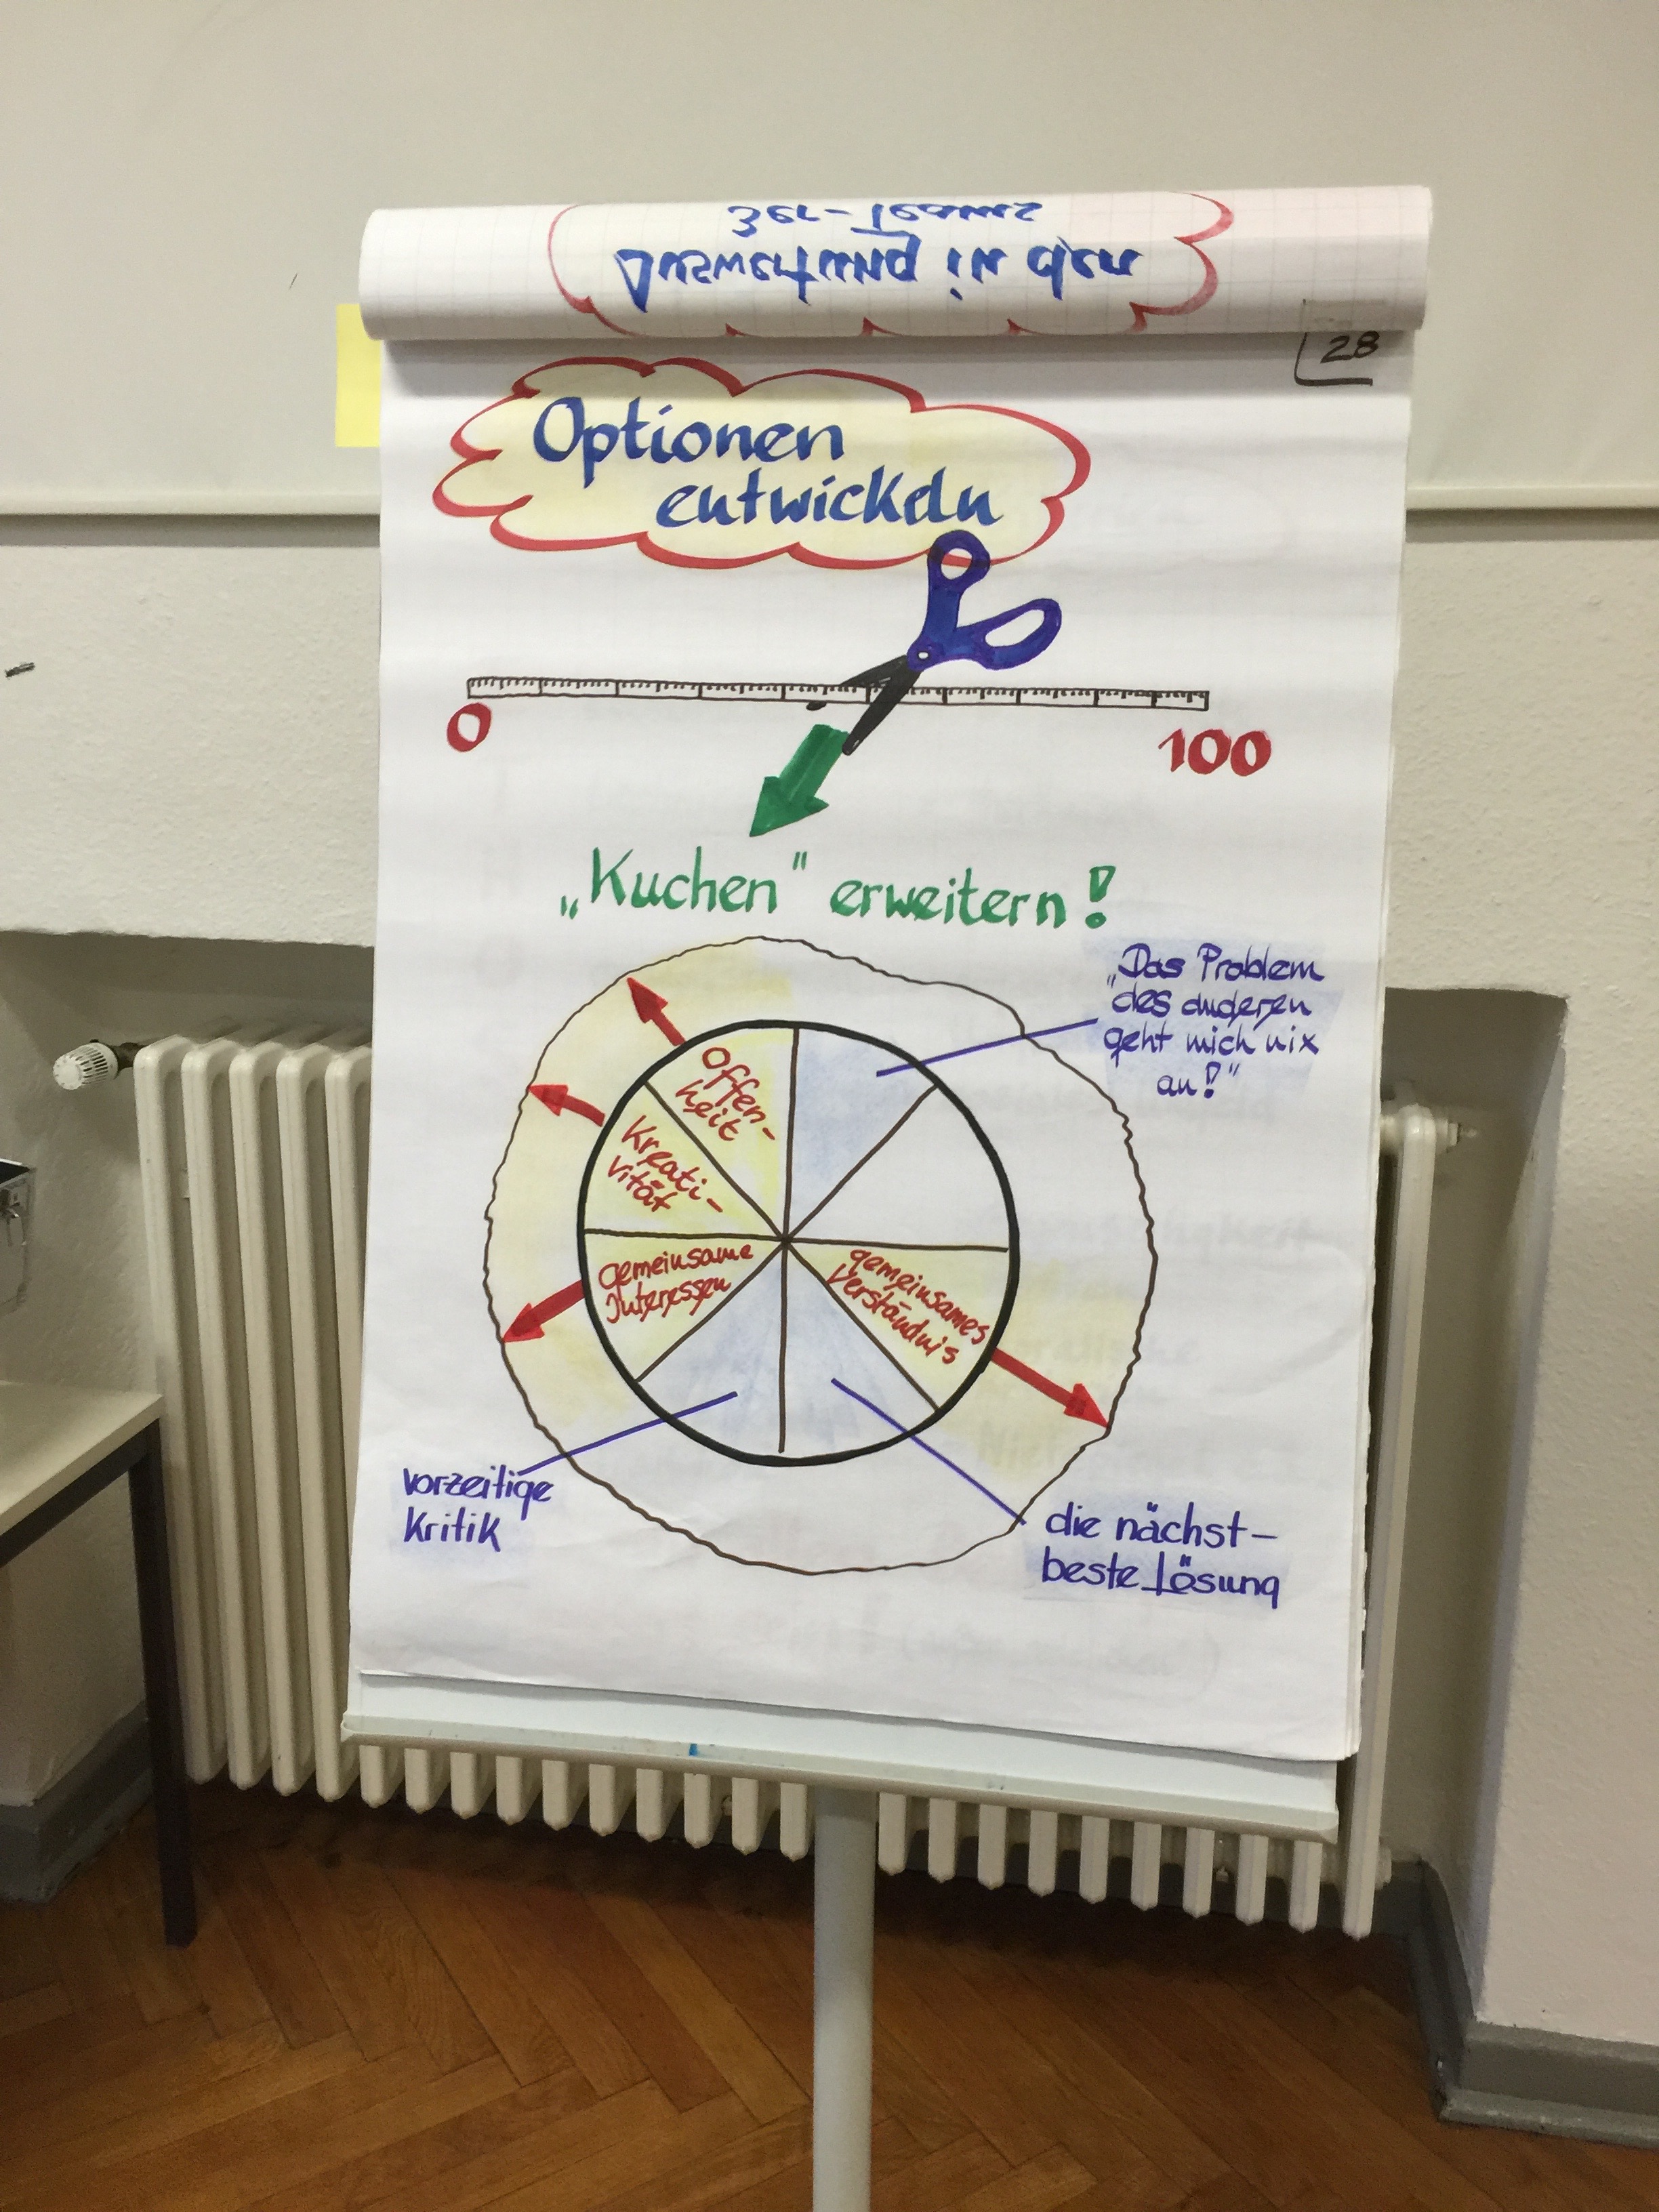 Auswertung in den
3er-Teams
28
Optionen
entwickeln
0
100
„Kuchen" erweitern!
„Das Problem
des anderen
geht mich nix
an!"
Offen-
heit
Kreati-
vität
gemeinsame
Interessen
gemeinsames
Verständnis
vorzeitige
Kritik
die nächst-
beste Lösung